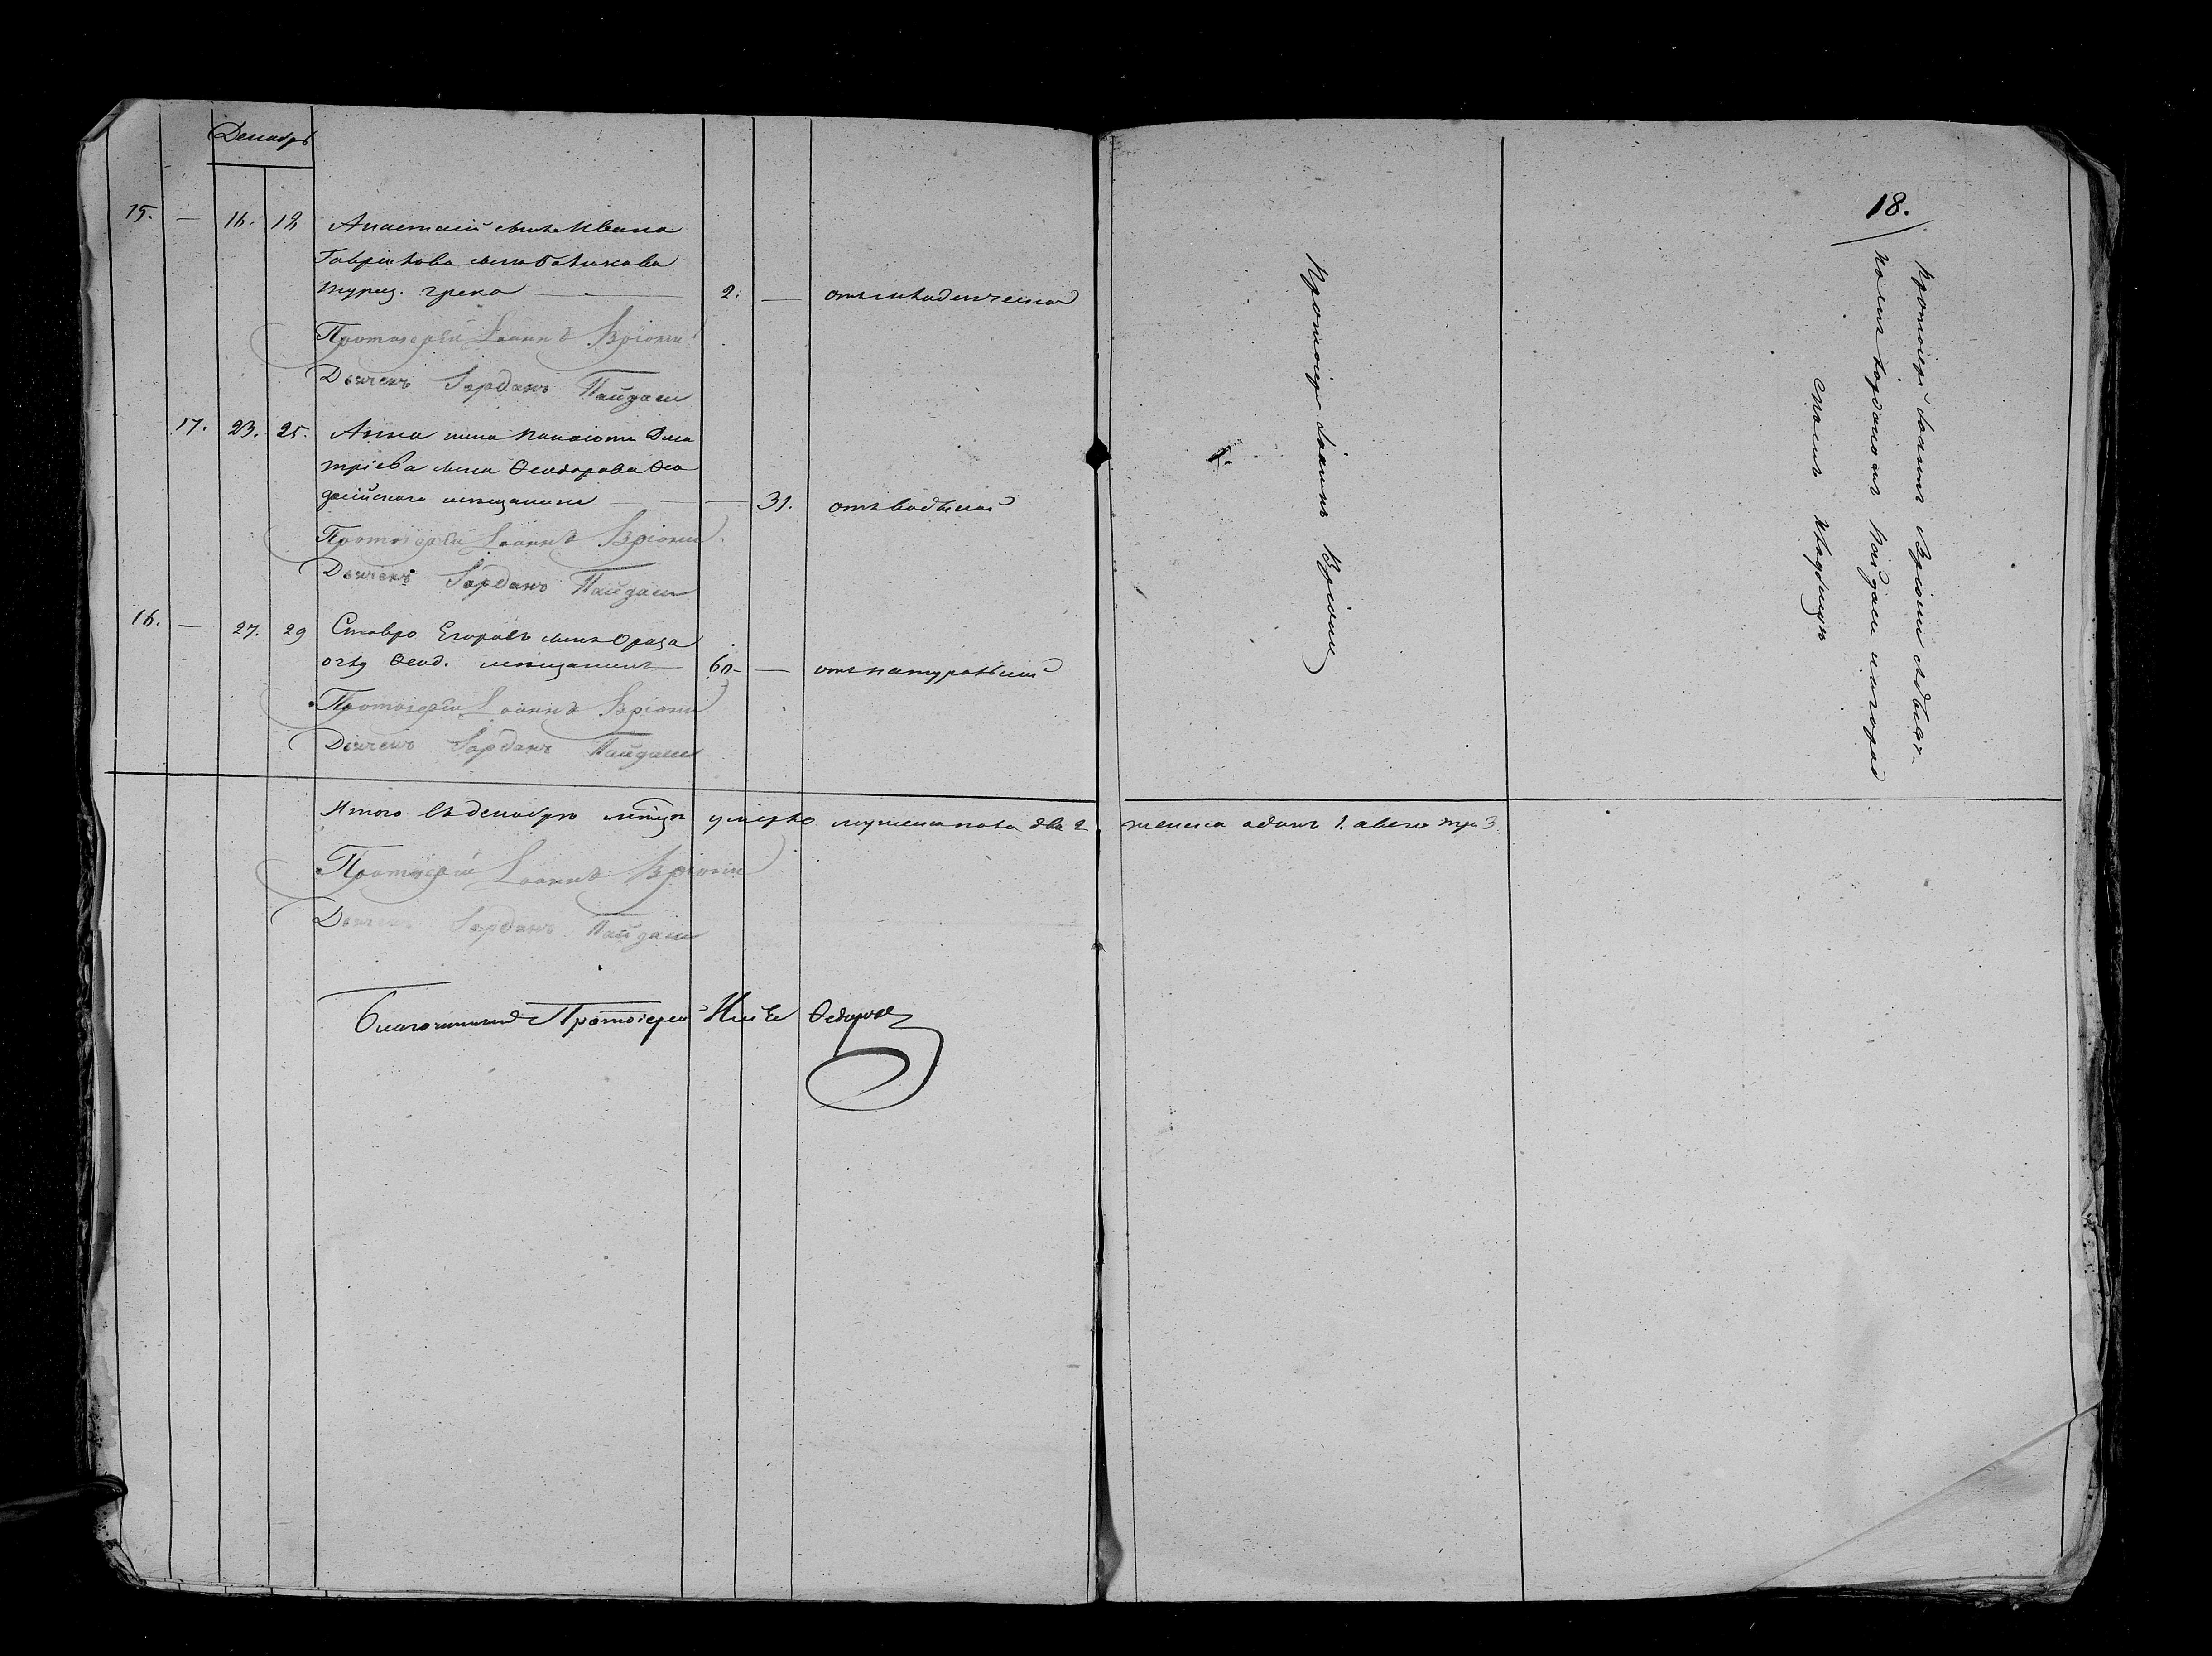 Декабрь
15. — 16. 18 Анастасій сынъ Ивана
Гаврилова сына
турец. грека — 2. — отъ младенческой
Протоіерей Іоаннъ Вріони
Дьячекъ Іорданъ Пайдаси
17. 23. 25. Анна жена Панаіота Дми
тріева сына Ѳеодорова Ѳео
досійскаго мещанина — — 31. отъ водяной
Протоіерей Іоаннъ Вріони
Дьячекъ Іорданъ Пайдаси
16. — 27. 29 Ставро Егоровъ сынъ
Ѳеод. мещанинъ 60 — отъ натуральной
Протоіерей Іоаннъ Вріони
Дьячекъ Іорданъ Пайдаси
Итого въ декабрѣ мѣсяцѣ умерло мужеска пола два 2 женска одинъ 1. а всего три 3.
Протоіерей Іоаннъ Вріони
Дьячекъ Іорданъ Пайдаси
Благочинный Протоіерей Илья Ѳедоров
Протоіерей Іоаннъ Вріони
18.
Протоіерей Іоаннъ Вріони съ дьяч-
комъ Іорданомъ Пайдаси на город
скомъ кладбищѣ